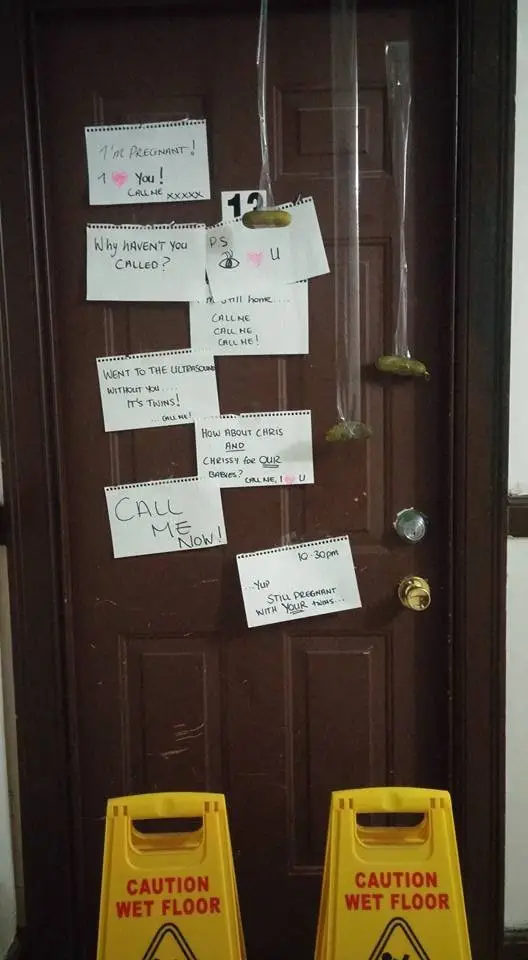 I'M PREGNANT!
I ❤ You!
CALL ME xxxxx
12
Why HAVEN'T YOU
CALLED?
P.S
👁 ❤ U
still home....
CALL ME
CALL ME
CALL ME!
WENT TO THE ULTRASOUND
WITHOUT YOU....
IT'S TWINS!
...CALL ME!
HOW ABOUT CHRIS
AND
CHRISSY for OUR
BABIES? CALL ME, I ❤ U
CALL
ME
NOW!
10:30pm
...YUP
STILL PREGNANT
WITH YOUR twins...
CAUTION
WET FLOOR
CAUTION
WET FLOOR